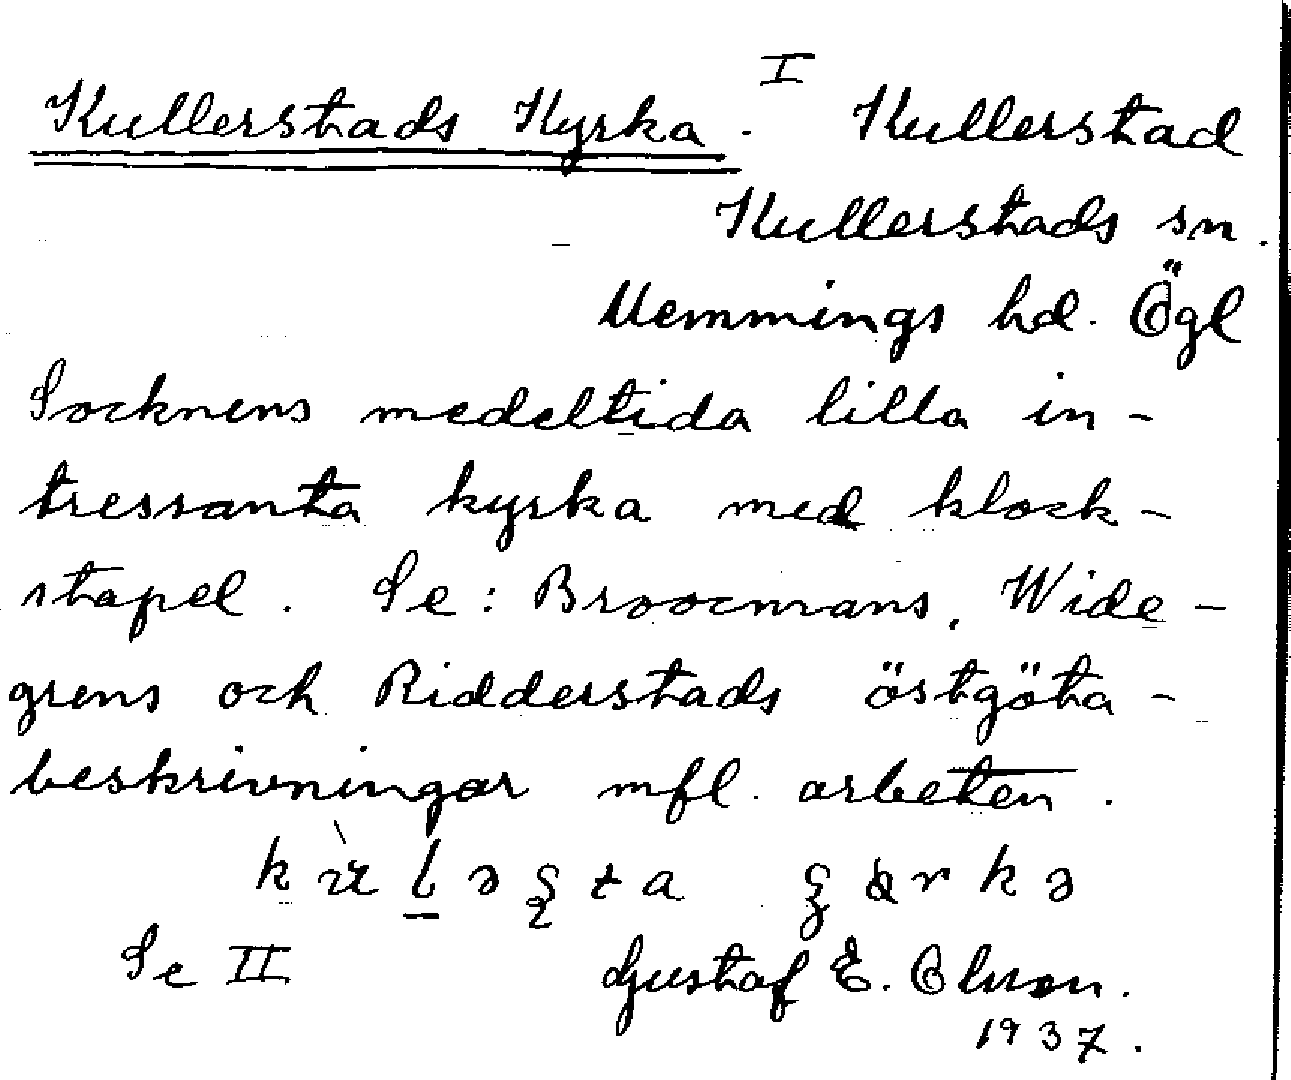 I
Kullerstads Kyrka. Kullerstad
Kullerstads sn.
Memmings hd. Ögl
Socknens medeltida lilla in-
tressanta kyrka med klock-
stapel. Se: Broocmans, Wide-
grens och Ridderstads östgöta-
beskrivningar mfl. arbeten.
Se II Gustaf E. Olsson.
1937.